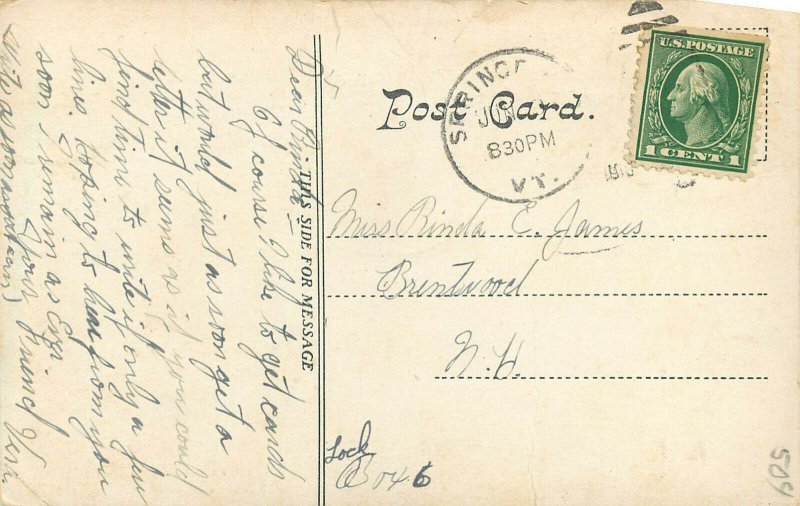 Dear Rinda —
Of course I like to get cards
but would just as soon get a
letter it seems as if you could
find time to write if only a few
lines. Hoping to hear from you
soon I remain as Ever
Your Friend Vera
Write as soon as you can)
THIS SIDE FOR MESSAGE
Post Card.
SPRINGF
JUN
830PM
VT.
U.S. POSTAGE
1 CENT 1
Miss Rinda E. James
Brentwood
N. H.
Lock
Box 6